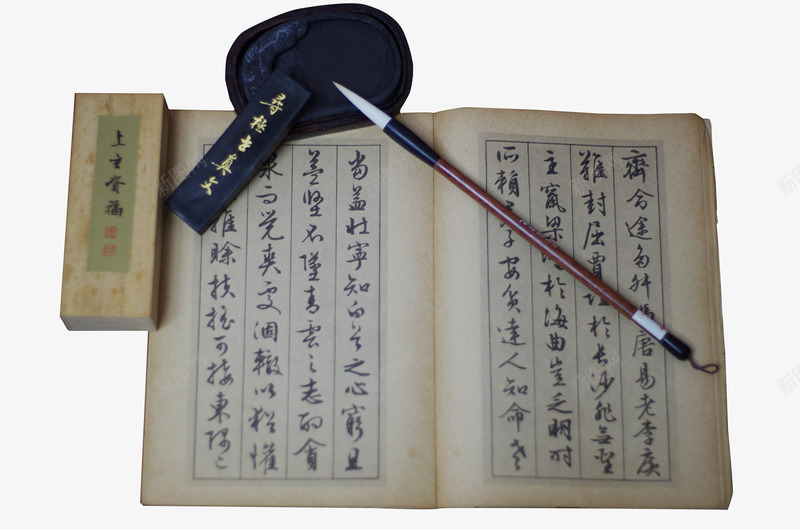 齊命途多舛馮唐易老李廣
難封屈賈誼於長沙非無聖
主竄梁鴻於海曲豈乏明時
所賴君子安貧達人知命老
當益壯寧知白首之心窮且
益堅不墜青雲之志酌貪
泉而覺爽處涸轍以猶懽
雖賒扶搖可接東隅已
尋極古真文
上主賚福